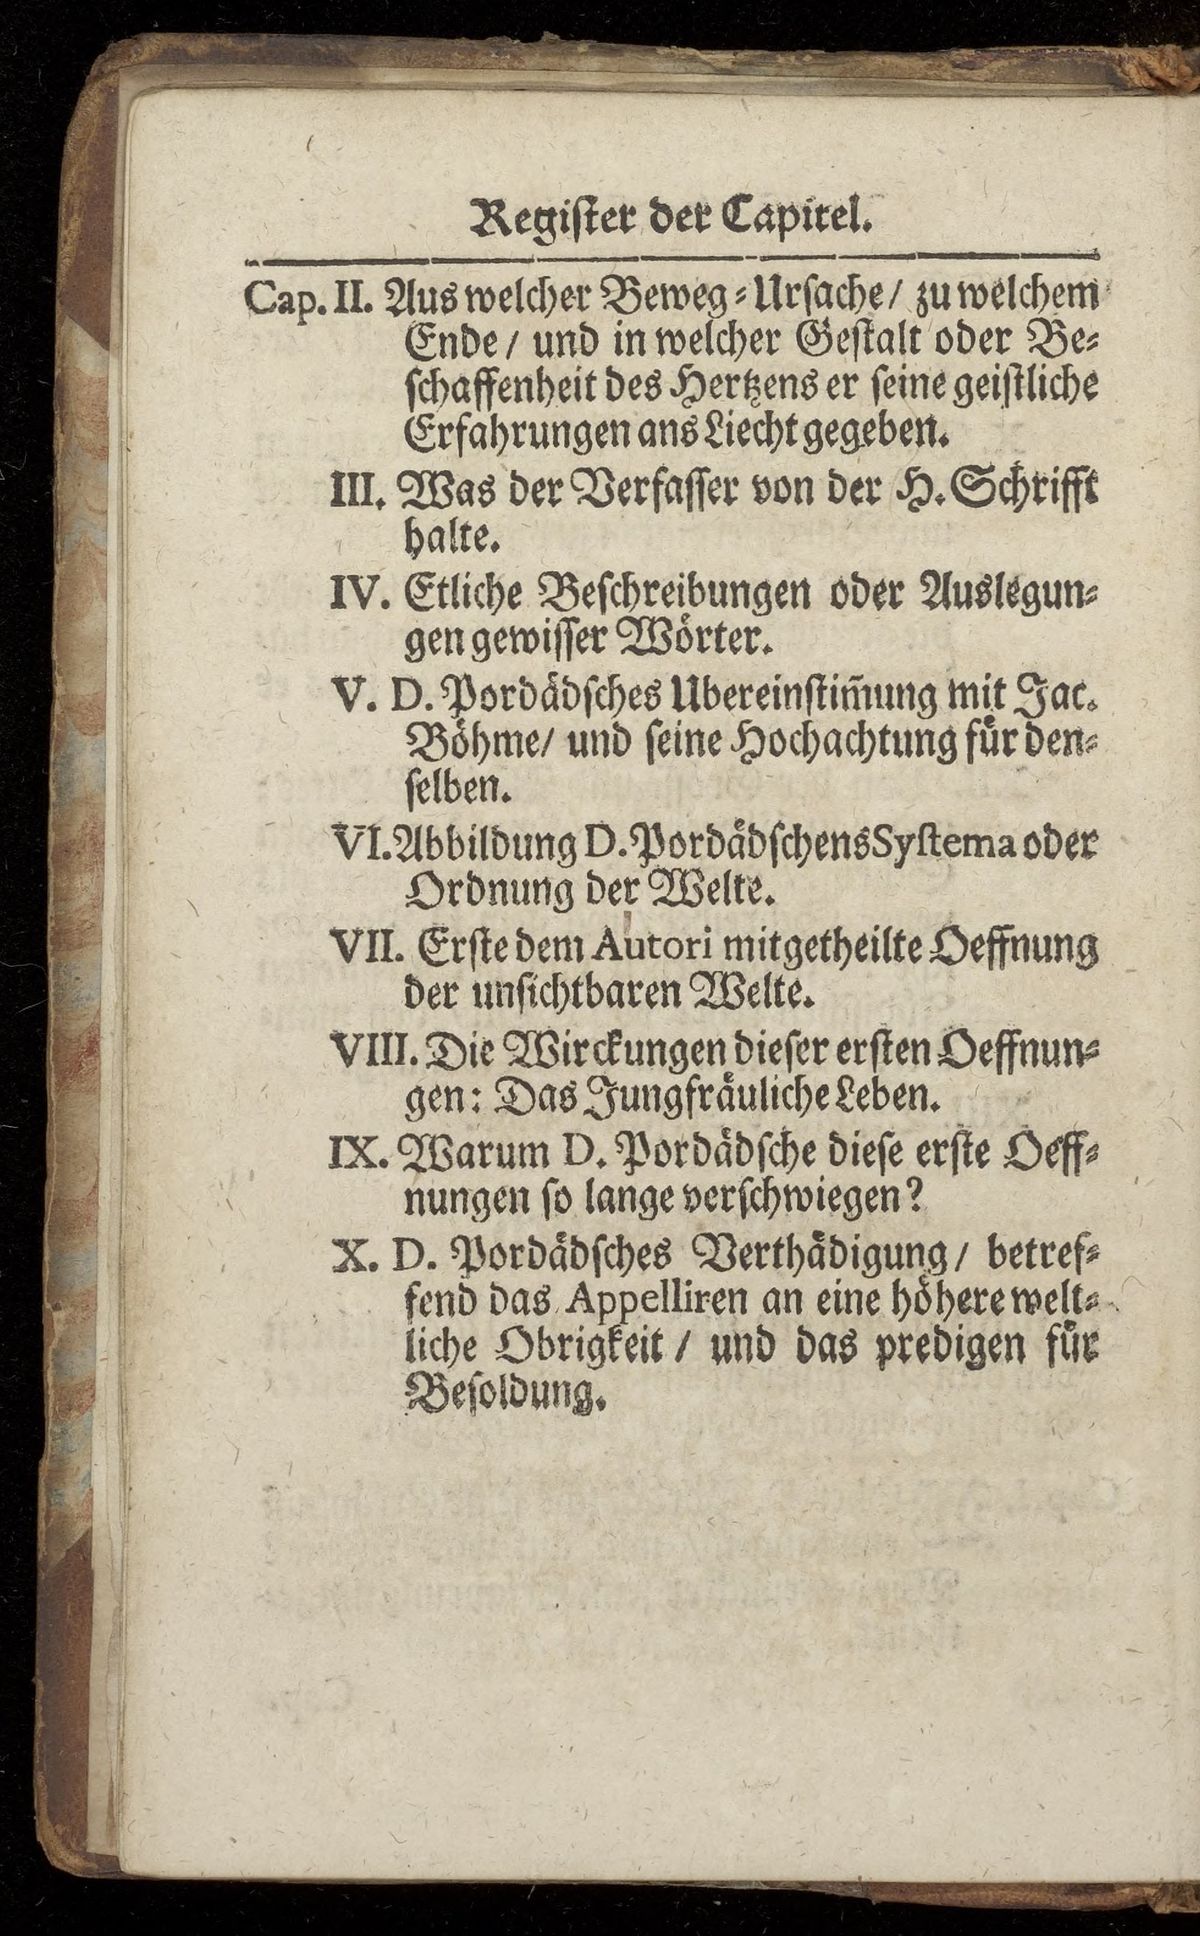 Regiſter der Capitel.
Cap. II. Aus welcher Beweg-Urſache/ zu welchem
Ende/ und in welcher Geſtalt oder Be-
ſchaffenheit des Hertzens er ſeine geiſtliche
Erfahrungen ans Liecht gegeben.
III. Was der Verfaſſer von der H. Schrifft
halte.
IV. Etliche Beſchreibungen oder Auslegun-
gen gewiſſer Wörter.
V. D. Pordädſches Ubereinſtim̄ung mit Jac.
Böhme/ und ſeine Hochachtung für den-
ſelben.
VI. Abbildung D. Pordädſchens Syſtema oder
Ordnung der Welte.
VII. Erſte dem Autori mitgetheilte Oeffnung
der unſichtbaren Welte.
VIII. Die Wirckungen dieſer erſten Oeffnun-
gen: Das Jungfräuliche Leben.
IX. Warum D. Pordädſche dieſe erſte Oeff-
nungen ſo lange verſchwiegen?
X. D. Pordädſches Verthädigung/ betref-
fend das Appelliren an eine höhere welt-
liche Obrigkeit/ und das predigen für
Beſoldung.